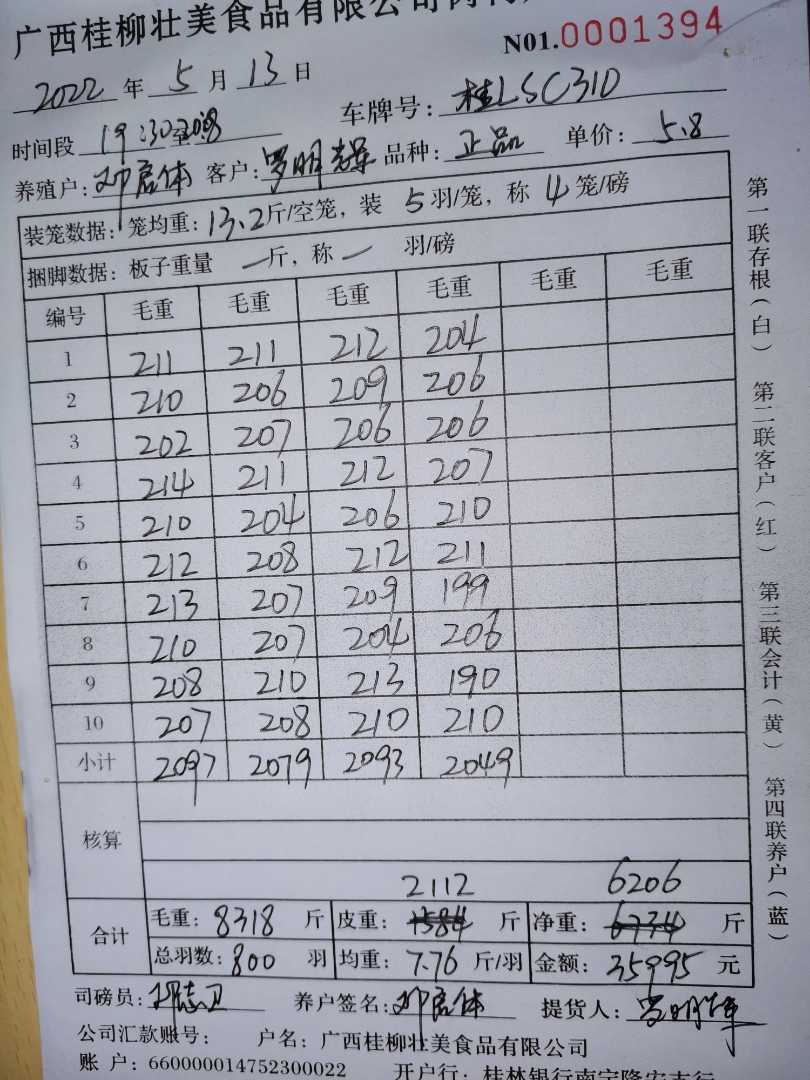 广西桂柳壮美食品有限公司
N01.0001394
2022 年 5 月 13 日
车牌号: 桂LSC310
时间段 19:30至
养殖户: 邓启体 客户: 罗明 品种: 正品 单价: 5.8
装笼数据: 笼均重: 13.2斤/空笼, 装 5 羽/笼, 称 4 笼/磅
捆脚数据: 板子重量 — 斤, 称 — 羽/磅
编号 毛重 毛重 毛重 毛重 毛重 毛重
1 211 211 212 204
2 210 206 209 206
3 202 207 206 206
4 214 211 212 207
5 210 204 206 210
6 212 208 212 211
7 213 207 209 199
8 210 207 204 206
9 208 210 213 190
10 207 208 210 210
小计 2097 2079 2093 2049
核算
2112 6206
合计 毛重: 8318 斤 皮重: 1584 斤 净重: 6734 斤
总羽数: 800 羽 均重: 7.76 斤/羽 金额: 35995 元
司磅员: 养户签名: 邓启体 提货人: 罗明
公司汇款账号: 户名: 广西桂柳壮美食品有限公司
账 户: 6600000014752300022 开户行: 桂林银行南宁隆安支行
第一联存根(白) 第二联客户(红) 第三联会计(黄) 第四联养户(蓝)